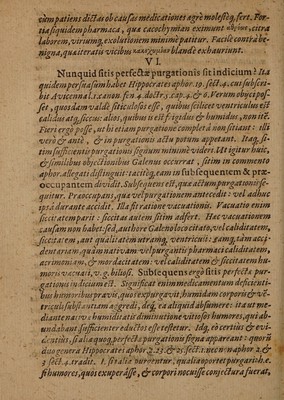 cum patiens dictas ob causas medicationes agrè molestéq; fert. For-
tia siquidem pharmaca, qua cacochymian eximunt citra
laborem, virium q; exolutionem minimè petitur. Facile contrà be-
nigna, quateratis vicibus blandè exhauriunt.
VI.
Nunquid sitis perfectæ purgationis sit indicium? Ita
quidem persuasum habet Hippocrates aphor. 19. sect. 4. cui subser-
bit Avicenna l. 1. canon. fen 4. doctr. 5. cap. 4. & 6. Verum obijci pos-
set, quosdam valdè siticulosos esse, quibus scilicet ventriculus est
calidus atq; siccus: alios, quibus is est frigidus & humidus, non itē.
Fieri ergò posse, ut hi etiam purgatione completâ non sitiant: illi
verò & antè, & in purgationis actu potum appetant. Itaq; si-
tim sufficientis purgationis signum minimè videri. Ut igitur huic,
& similibus objectionibus Galenus occurat, sitim in commento
aphor. allegati distinguit: tacitéq; eam in subsequentem & præ-
occupantem dividit. Subsequens est, quæ actum purgationis se-
quitur. Præoccupans, quæ vel purgationem antecedit: vel adhuc
ipsâ durante accidit. Illa fit ratione vacuationis. Vacuatio enim
siccitatem parit: siccitas autem sitim adfert. Hæc vacuationem
causam non habet: sed, authore Galeno loco citato, vel caliditatem,
siccitatem, aut qualitatem utramq; ventriculi: tamq; tàm acci-
dentariam, quàm nativam vel purgantis pharmaci caliditatem,
acrimoniam, & mordacitatem: vel caliditatem & siccitatem hu-
moris vacuati, v. g. biliosi. Subsequens ergò sitis perfectæ pur-
gationis indicium est. Significat enim medicamentum deficienti-
bus humoribus pravis, quos expurgavit, humidam corporis & ven-
triculi substantiam aggredi, deq; ea aliquid absumere: itaut me-
diante nativæ humiditatis diminutione vitiosos humores, qui ab-
undabant, sufficienter eductos esse testetur. Idq; eò certius & evi-
dentius, si talia quoq; perfectæ purgationis signa appareant: quorū
duo genera Hippocrates aphor. 2. 23. & 25. sect. 1. nec nō aphor. 2. &
3. sect. 4. tradit. 1. si talia ducuntur, qualia oportet purgari: h. e.
si humores, quos exuperâsse, & corpori nocuisse conjectura fuerat,